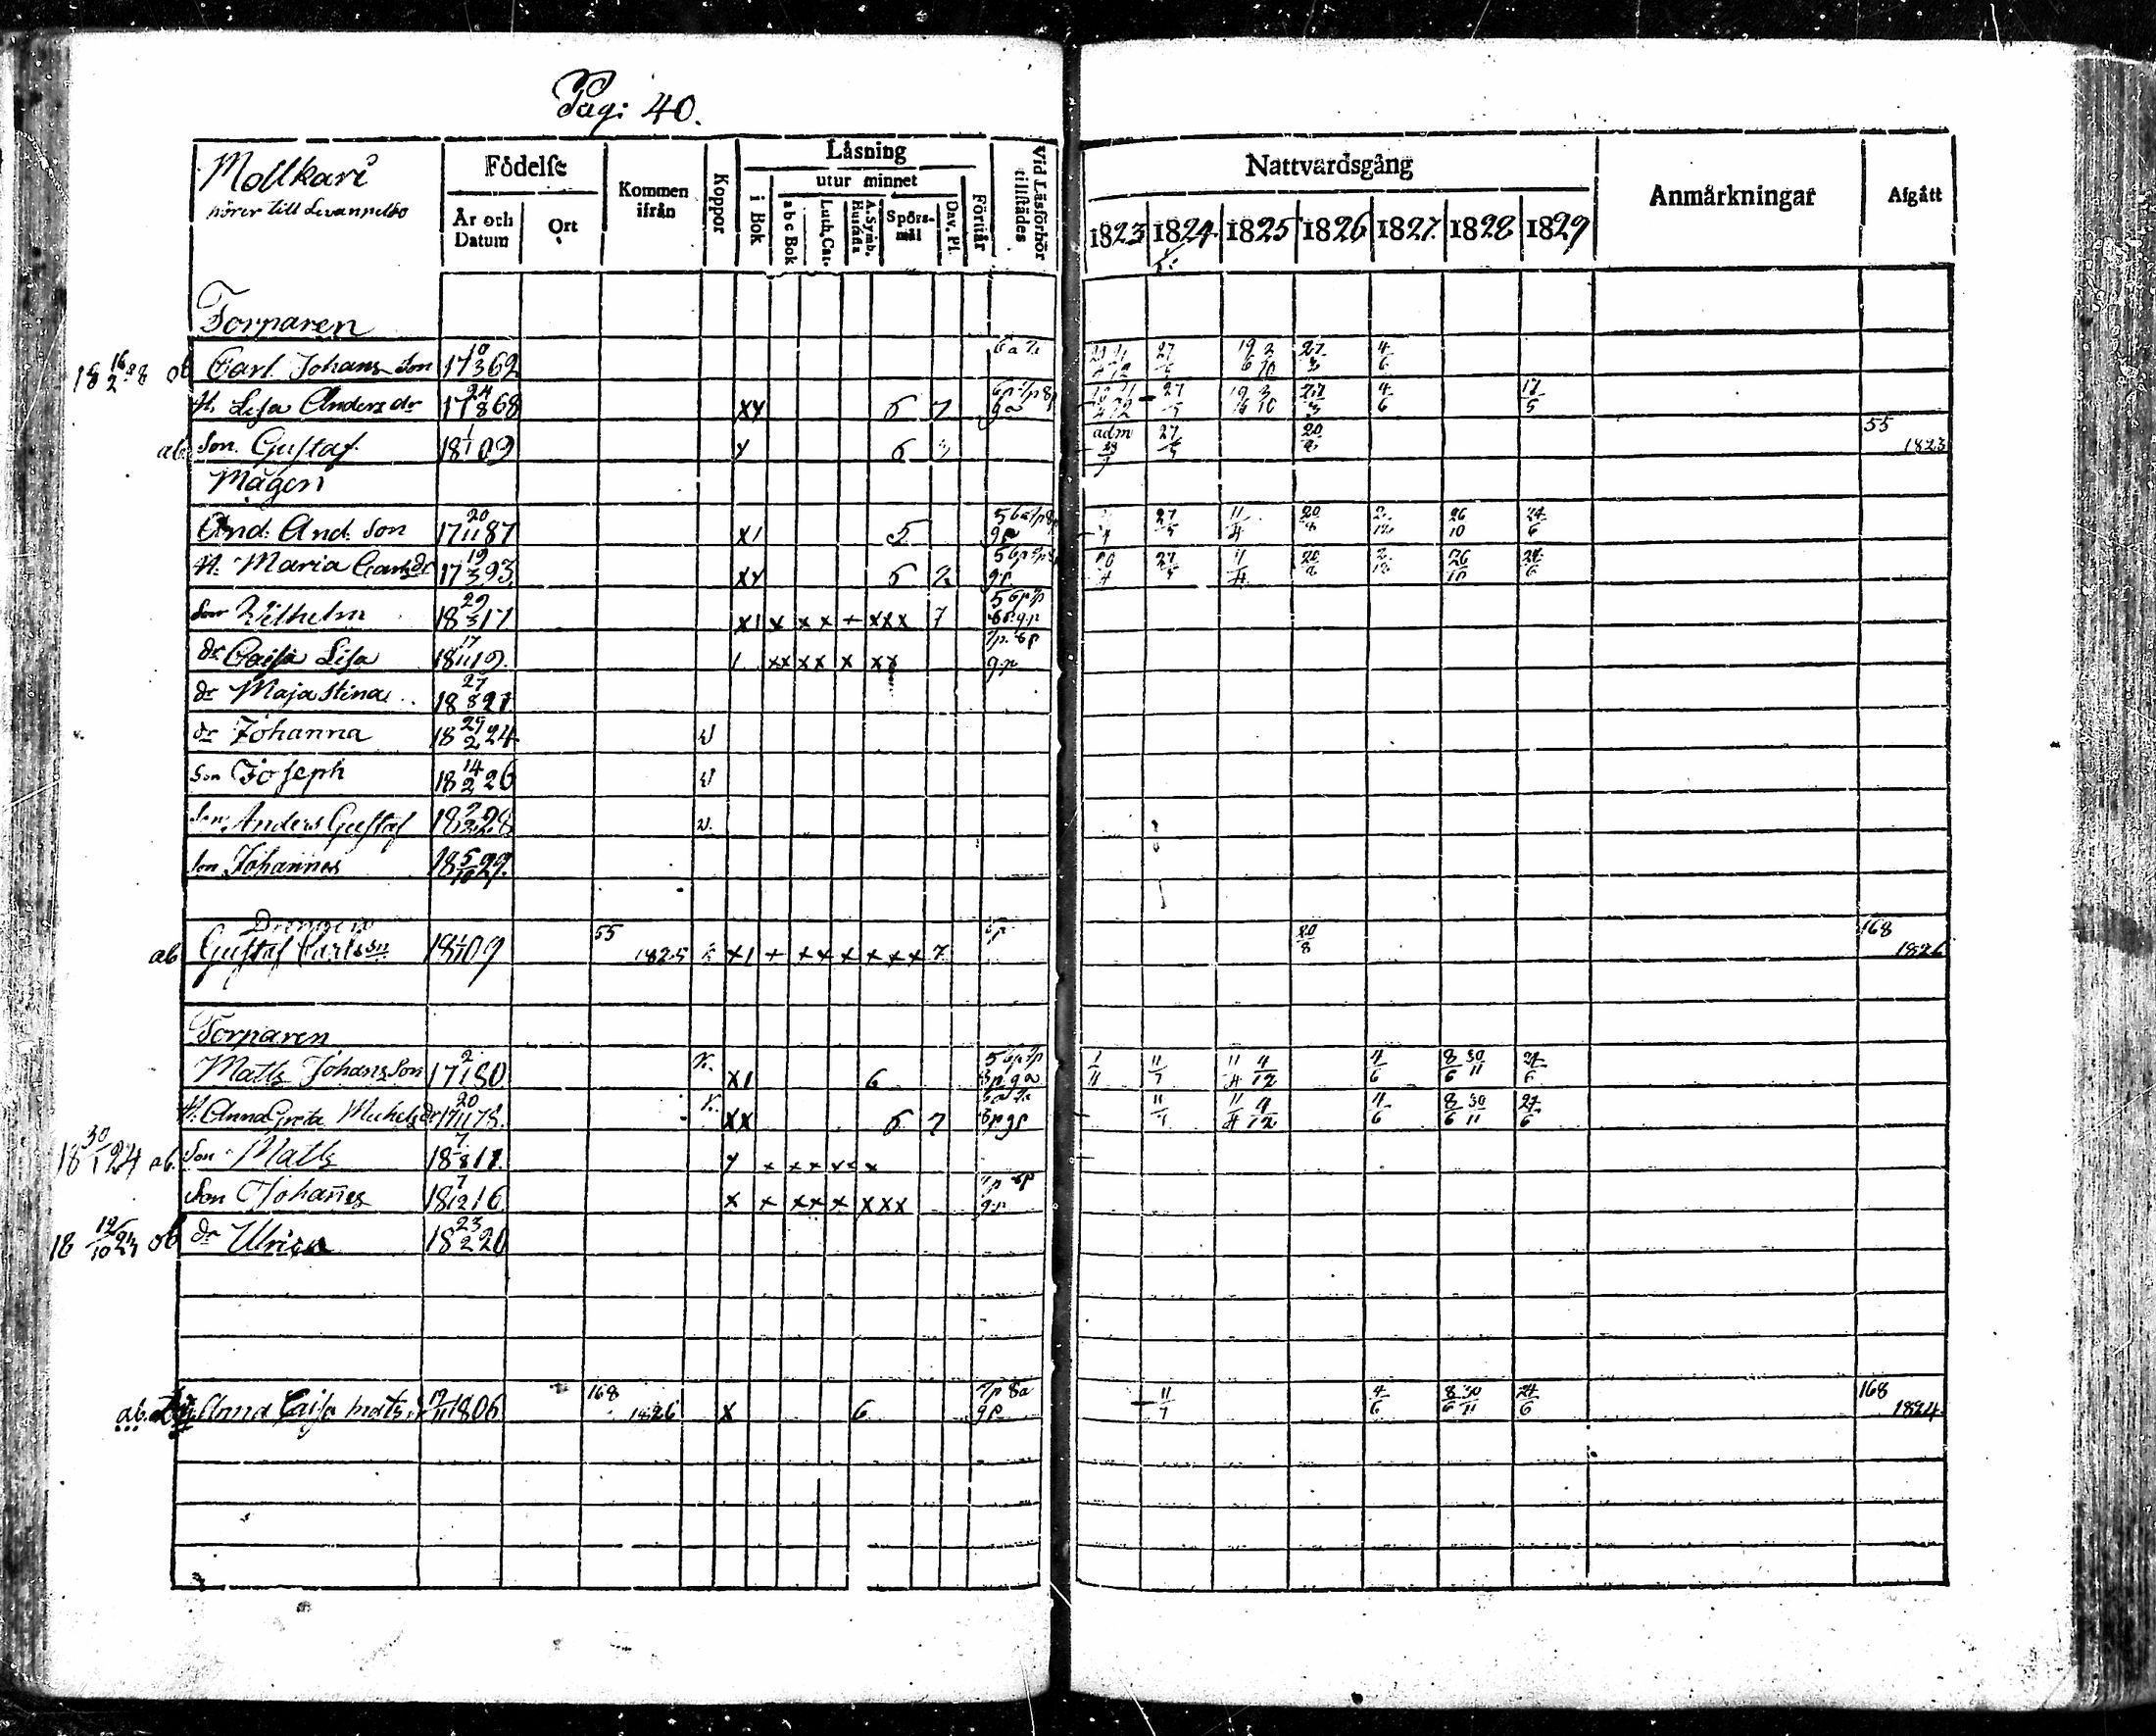 Pag: 40.
Mollkari
hörer till Levanpelto
Födelse
År och Datum
Ort
Kommen ifrån
Koppor
Läsning
i Bok
utur minnet
abc Bok
Luth. Cat.
A. Symb. Hustafla
Spörsmål
Dav. Ps.
Förstår
Vid Läsförhör tillstädes
Nattvardsgång
1823 1824 1825 1826 1827. 1828 1829
Anmärkningar
Afgått
Torparen
18 16/2 28 ob Carl Johans Son 17 10/3 62 27 4/6
H. Lisa Anders dr 17 24/8 68 XY 6 7 27 4/6 17/5
ab. Son Gustaf 18 1/1 09 Y 6 adm 27 20 55 1823
Mågen
And. And. Son 17 20/11 87 XI 5 27 11/4 20 26/10 24/6
H. Maria Carlsdr 17 19/3 93 XY 6 2 27 11/4 20 26/10 24/6
Son Wilhelm 18 29/3 17 XI x x x + xxx 7
dr Caisa Lisa 18 17/11 19. 1 xx xx x xx 9p
dr Maja Stina 18 27/8 21
dr Johanna 18 29/2 24
Son Joseph 18 14/2 26
Son Anders Gustaf 28
Son Johannes 18 5/10 29.
Drengen
ab Gustaf Carlssn 18 1/1 09 55 1825 XI + x x x x x x 7 20/8 168 1826
Torparen
Matts Johans Son 17 2/1 80 XI 6 1/11 11/7 11/4 4/12 4/6 8/6 30/11 24/6
H. Anna Greta Michelsdr 17 20/11 78. XX 6 7 11/7 11/4 4/12 4/6 8/6 30/11 24/6
18 30/1 24 ab. Son Matts 18 7/8 11. Y x x x x x x
Son Johan̄es 18 7/12 16 x x x x x xxx
ob dr Ulrica 18 23/2 20
ab. Anna Caisa Mats dr 1806 168 1826 X 6 7p 8a 9p 11/7 4/6 8/6 30/11 24/6 168 1824.